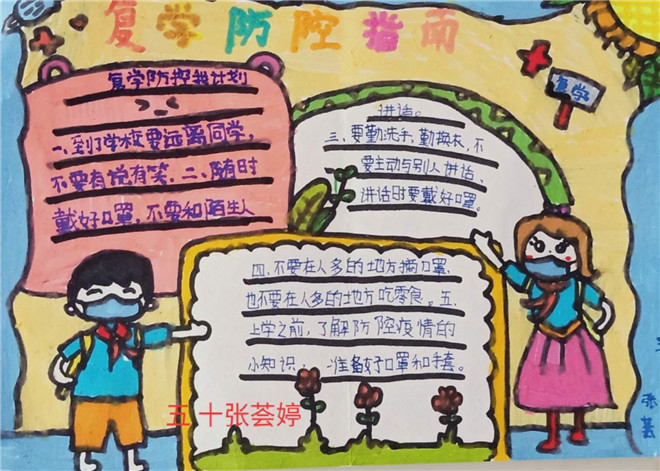 复学防控指南
复学
复学防控我计划
一、到了学校要远离同学,
不要有说有笑。二、随时
戴好口罩,不要和陌生人
讲话。
三、要勤洗手,勤换衣,不
要主动与别人讲话,
讲话时要戴好口罩。
四、不要在人多的地方摘口罩,
也不要在人多的地方吃零食。五、
上学之前,了解防控疫情的
小知识,准备好口罩和手套。
五 十张荟婷
张荟